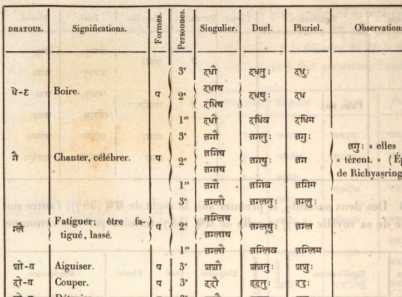 DHATOUS. Significations. Formes. Personnes. Singulier. Duel. Pluriel. Observation
3ᵉ दधौ दधतुः दधुः
धे-ट Boire. प 2ᵉ दधाथ दधिथ दधथुः दध
1ʳᵉ दधौ दधिव दधिम
3ᵉ जगौ जगतुः जगुः
जगुः « elles
गै Chanter, célébrer. प 2ᵉ जगिथ जगाथ जगथुः जग
« tèrent. » (Ép
1ʳᵉ जगौ जगिव जगिम
de Richyasring
3ᵉ जग्लौ जग्लतुः जग्लुः
ग्लै Fatiguer; être fa-
tigué, lassé. प 2ᵉ जग्लिथ जग्लाथ जग्लथुः जग्ल
1ʳᵉ जग्लौ जग्लिव जग्लिम
शो-य Aiguiser. प 3ᵉ शशौ शशतुः शशुः
दो-य Couper. प 3ᵉ ददौ ददतुः ददुः